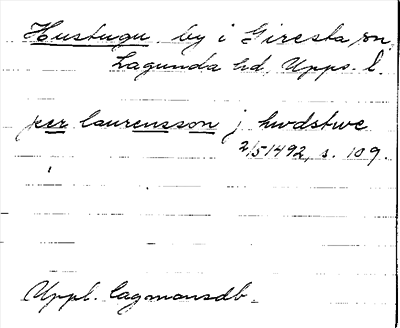 Hustugu by i Giresta sn,
Lagunda hd, Upps. l.
peer laurensson j hwdstwe
2/5 1492, s. 109.
Uppl. lagmansdb.